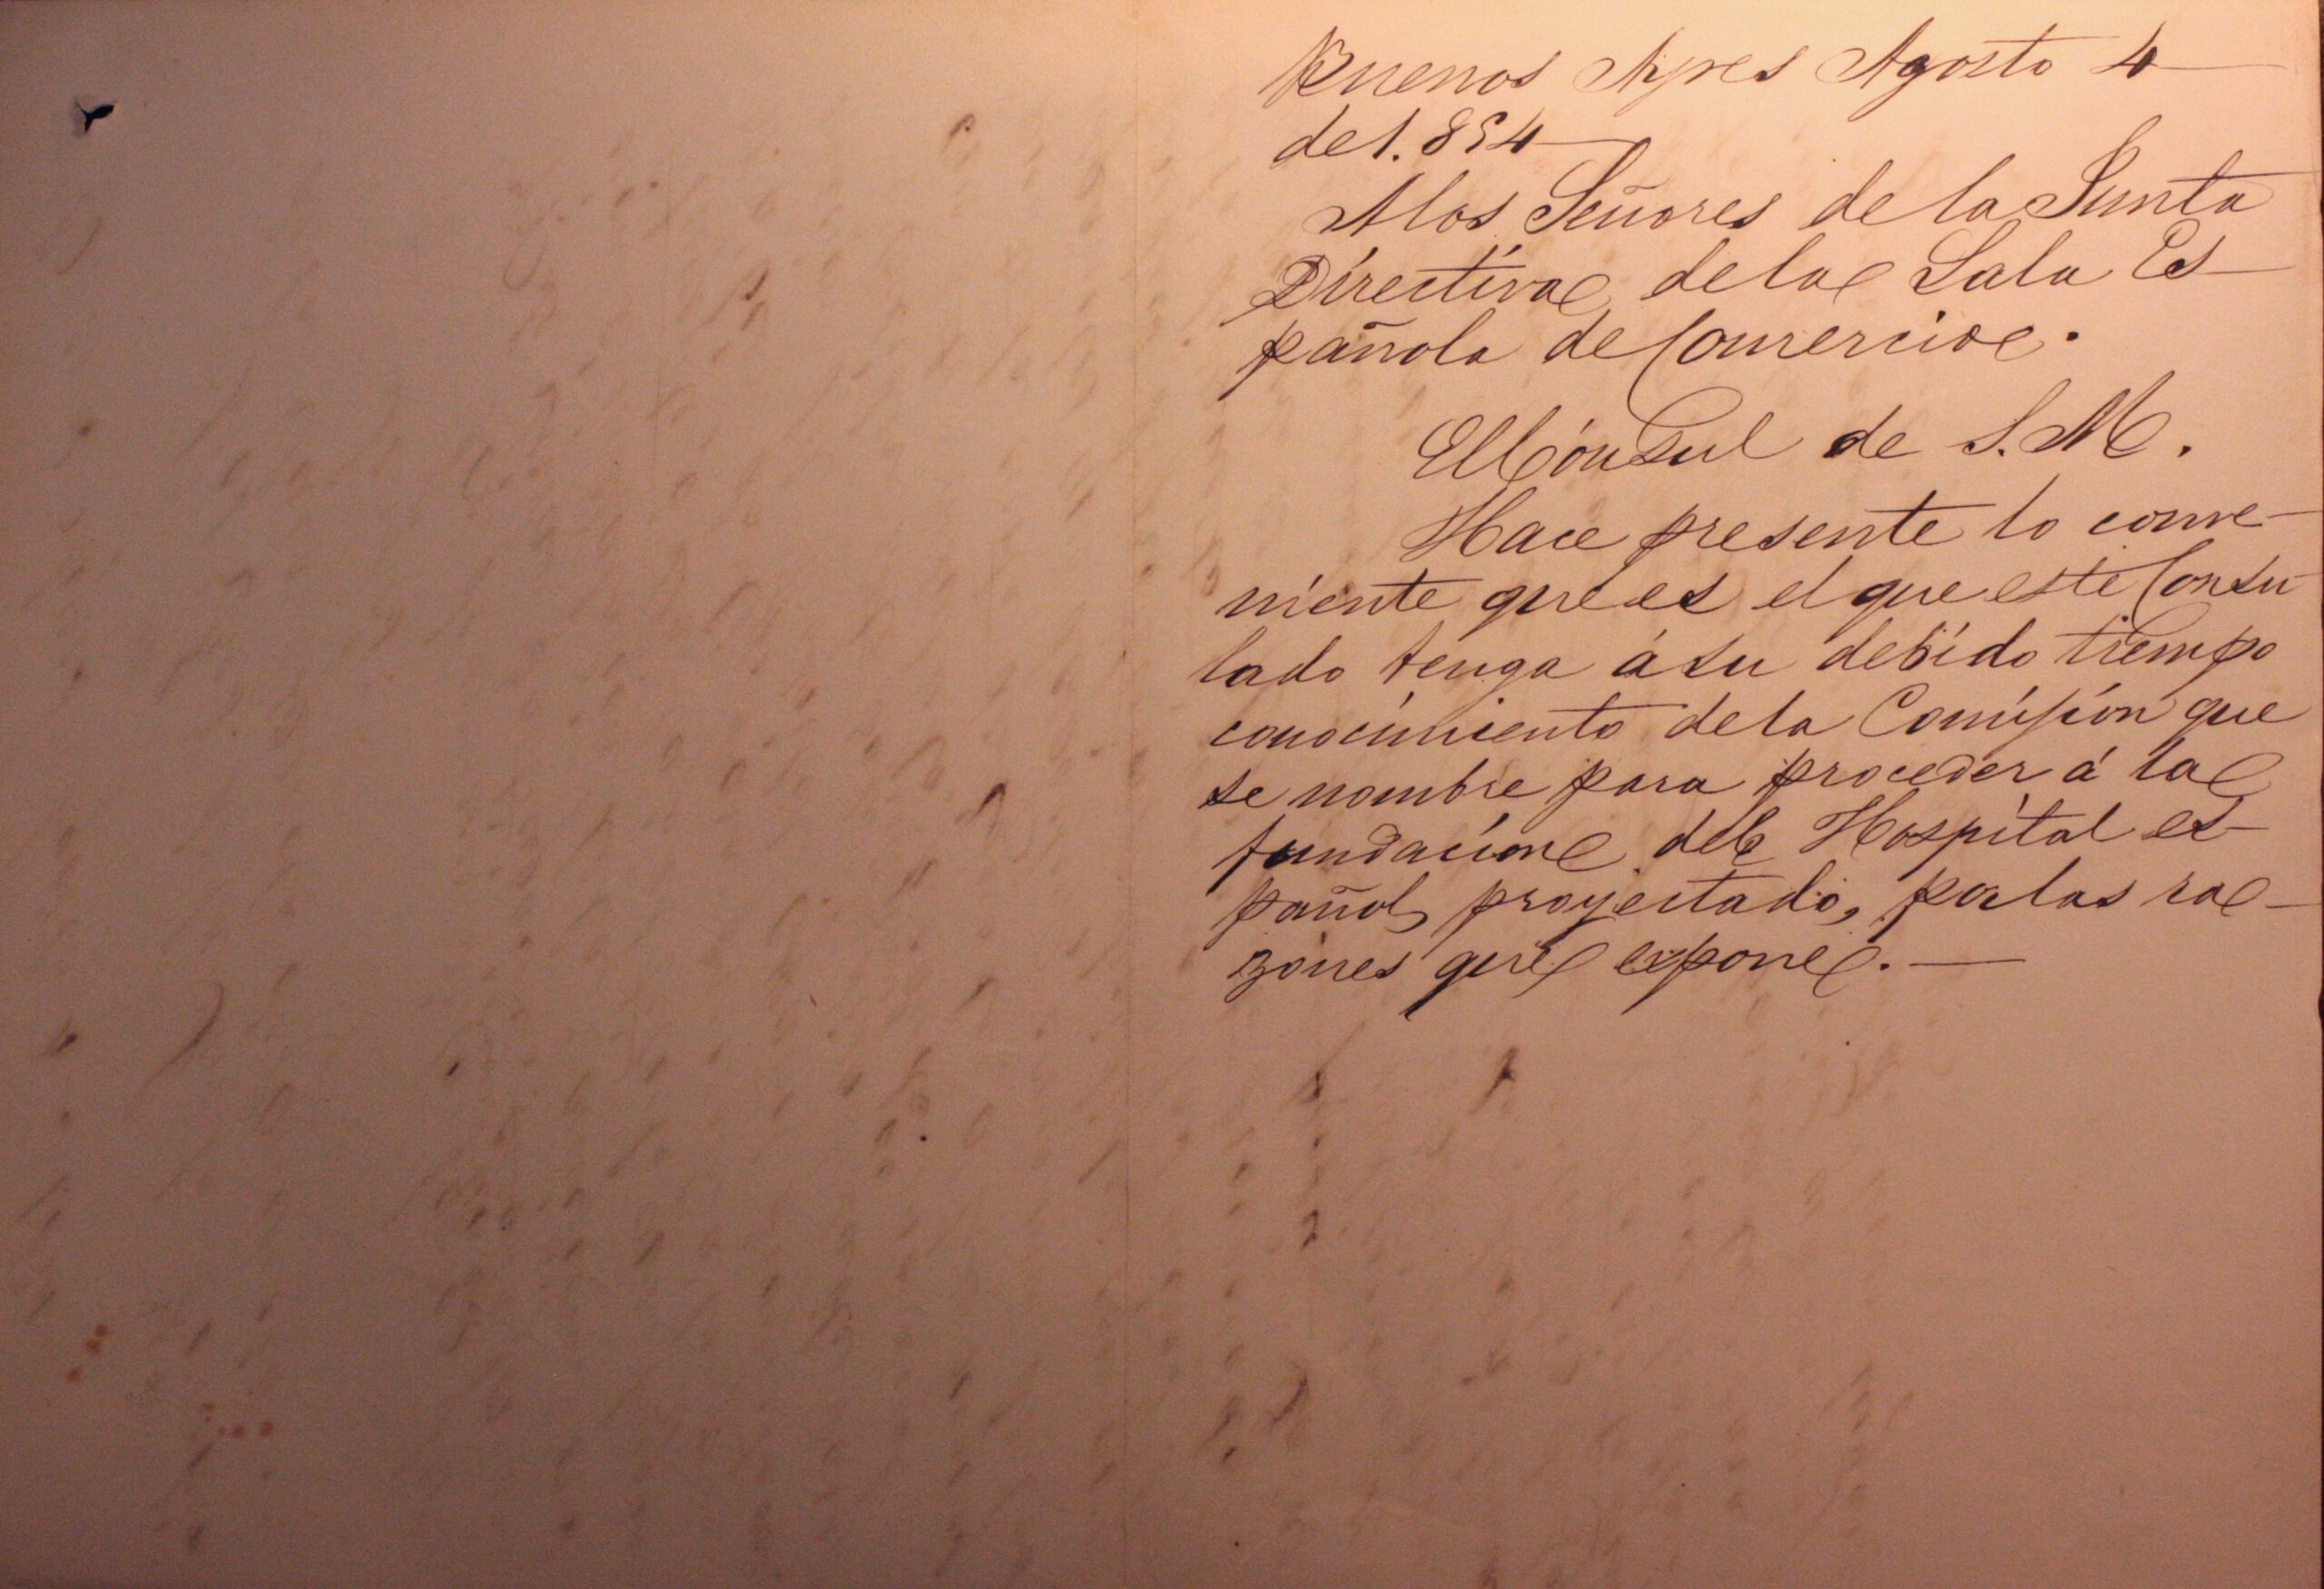 Buenos Ayres Agosto 4
de 1.854
A los Señores de la Junta
Directiva de la Sala Es
pañola de Comercio.
El Cónsul de S. M.
Hace presente lo conve-
niente que es el que este Consu
lado tenga á su debido tiempo
conocimiento de la Comision que
se nombre para proceder á la
fundacion del Hospital es-
pañol proyectado, por las ra-
zones que expone.